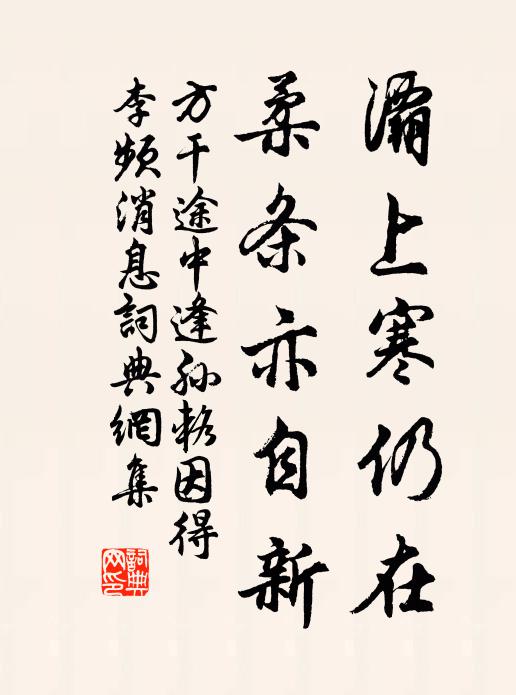 灞上寒仍在
柔条亦自新
方干途中逢孙輅因得
李频消息詞典網集
詞典
网印